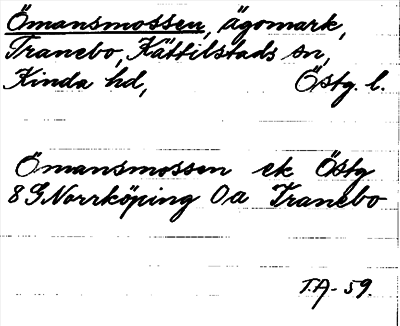 Ömansmossen, ägomark,
Tranebo, Kättilstads sn,
Kinda hd, Östg. l.
Ömansmossen ek Östg
8 G Norrköping 0a Tranebo
T.A- 59.